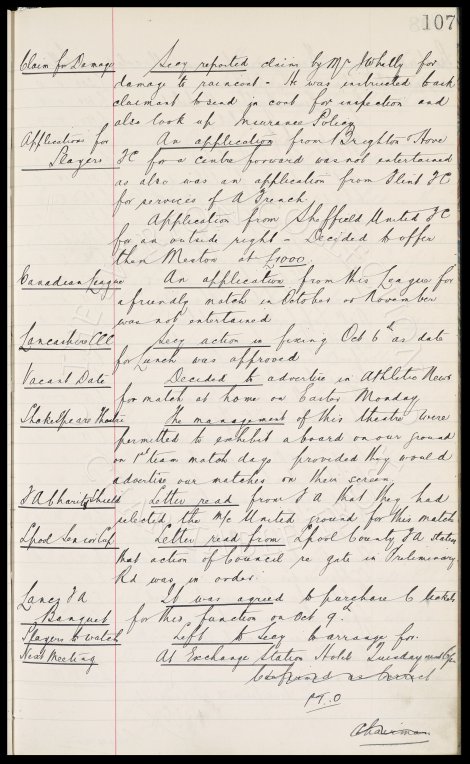 107
Claim for Damage Secy reported claim by Mr J Whelly for
damage to raincoat - He was instructed to ask
claimant to send in coat for inspection and
also look up Insurance Policy
Applications for An application from Brighton & Hove
Players FC for a centre forward was not entertained
as also was an application from Flint FC
for services of A French.
Application from Sheffield United FC
for an outside right - Decided to offer
them Meston at £1000.
Canadian League An application from this League for
a friendly match in October or November
was not entertained
Lancashire CCC Secy action in fixing Oct 6th as date
for Lunch was approved
Vacant Date Decided to advertise in Athletic News
for match at home on Easter Monday
Shakespeare Theatre The management of this theatre were
permitted to exhibit a board on our ground
on 1st team match days provided they would
advertise our matches on their screen
FA Charity Shield Letter read from FA that they had
selected the M/c United ground for this match
Lpool Senior Cup Letter read from Lpool County FA stating
that action of Council re gate in Preliminary
Rd was in order
Lancs FA It was agreed to purchase 6 tickets
Banquet for this function on Oct 9th
Players to watch Left to Secy to arrange for.
Next Meeting At Exchange Station Hotel Tuesday next
Confirmed as Correct
P.T.O
Chairman